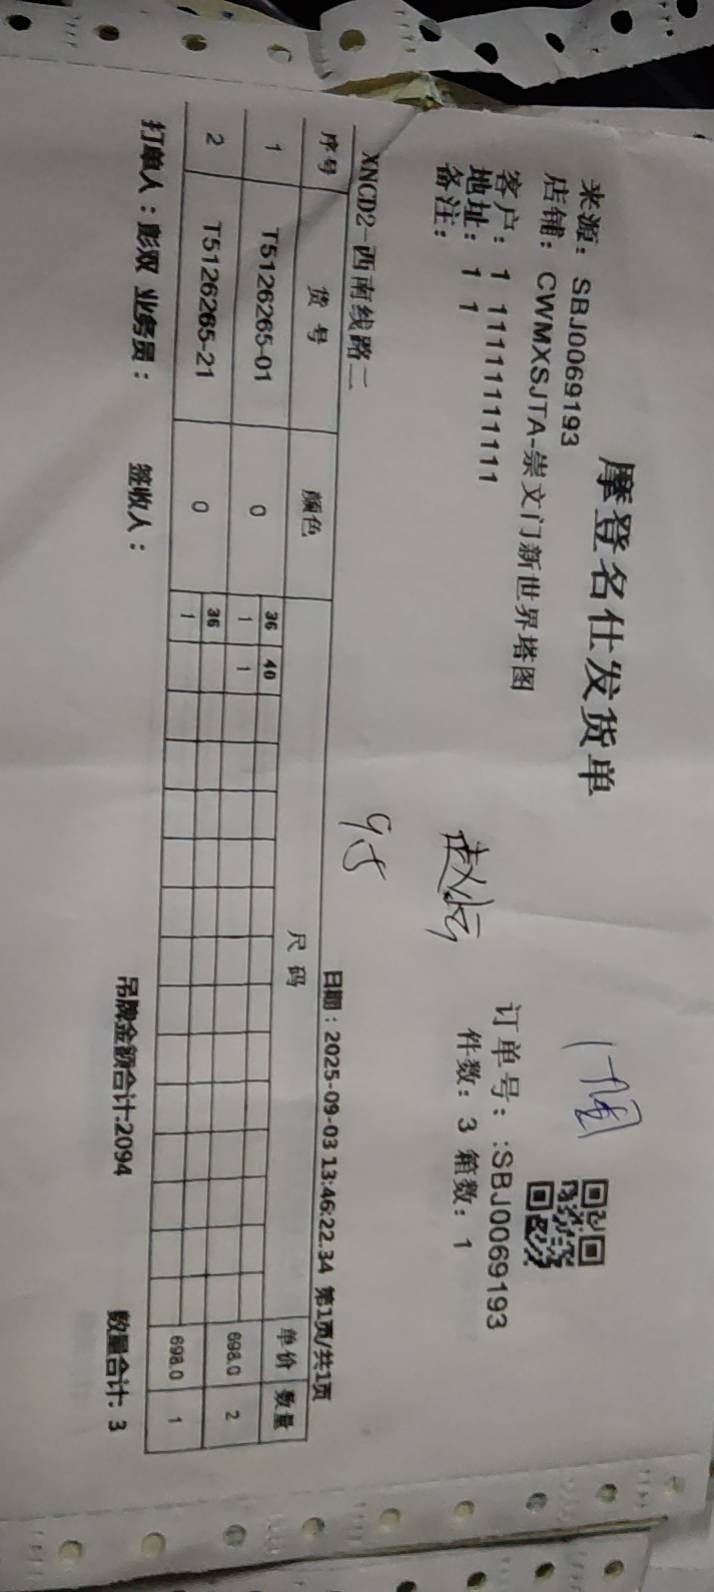 摩登名仕发货单
来源：SBJ0069193
店铺：CWMXSJTA-崇文门新世界塔图
订单号：:SBJ0069193
客户：1 11111111111
件数：3 箱数：1
地址：1 1
备注：
95
XNCD2-西南线路二 日期：2025-09-03 13:46:22.34 第1页/共1页
序号 货号 颜色 尺码 单价 数量
36 40
1 T5126265-01 0 1 1 698.0 2
36
2 T5126265-21 0 1 698.0 1
打单人：彭双 业务员： 签收人： 吊牌金额合计:2094 数量合计: 3